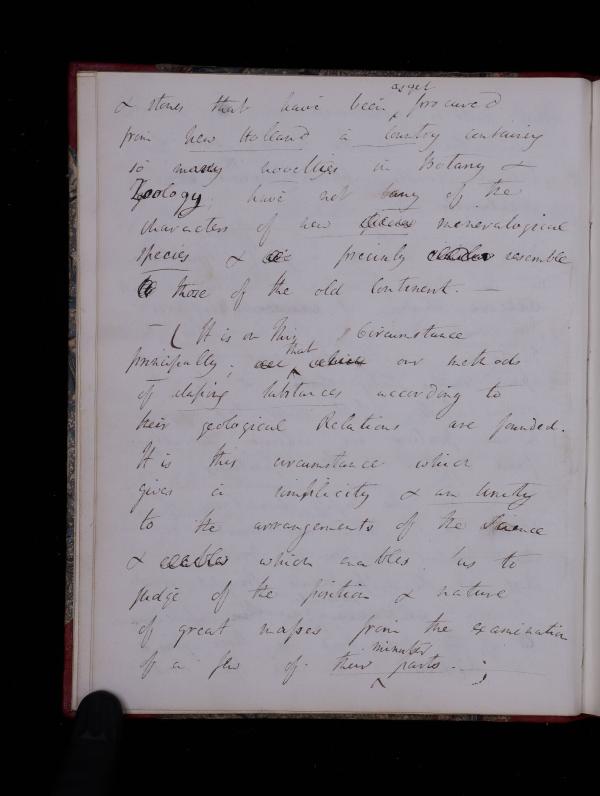 as yet
& stones that have been procured
from New Holland a country containing
so many novelties in Botany &
Zoology, have not any of the
characters of new mineralogical
species & precisely resemble
those of the old Continent. —
— ( It is on this circumstance
principally; that our methods
of classing substances according to
their geological Relations are founded.
It is this circumstance which
gives a simplicity & an unity
to the arrangements of the Science
& which enables us to
judge of the position & nature
of great masses from the examination
minuter
of a few of their parts. — ;